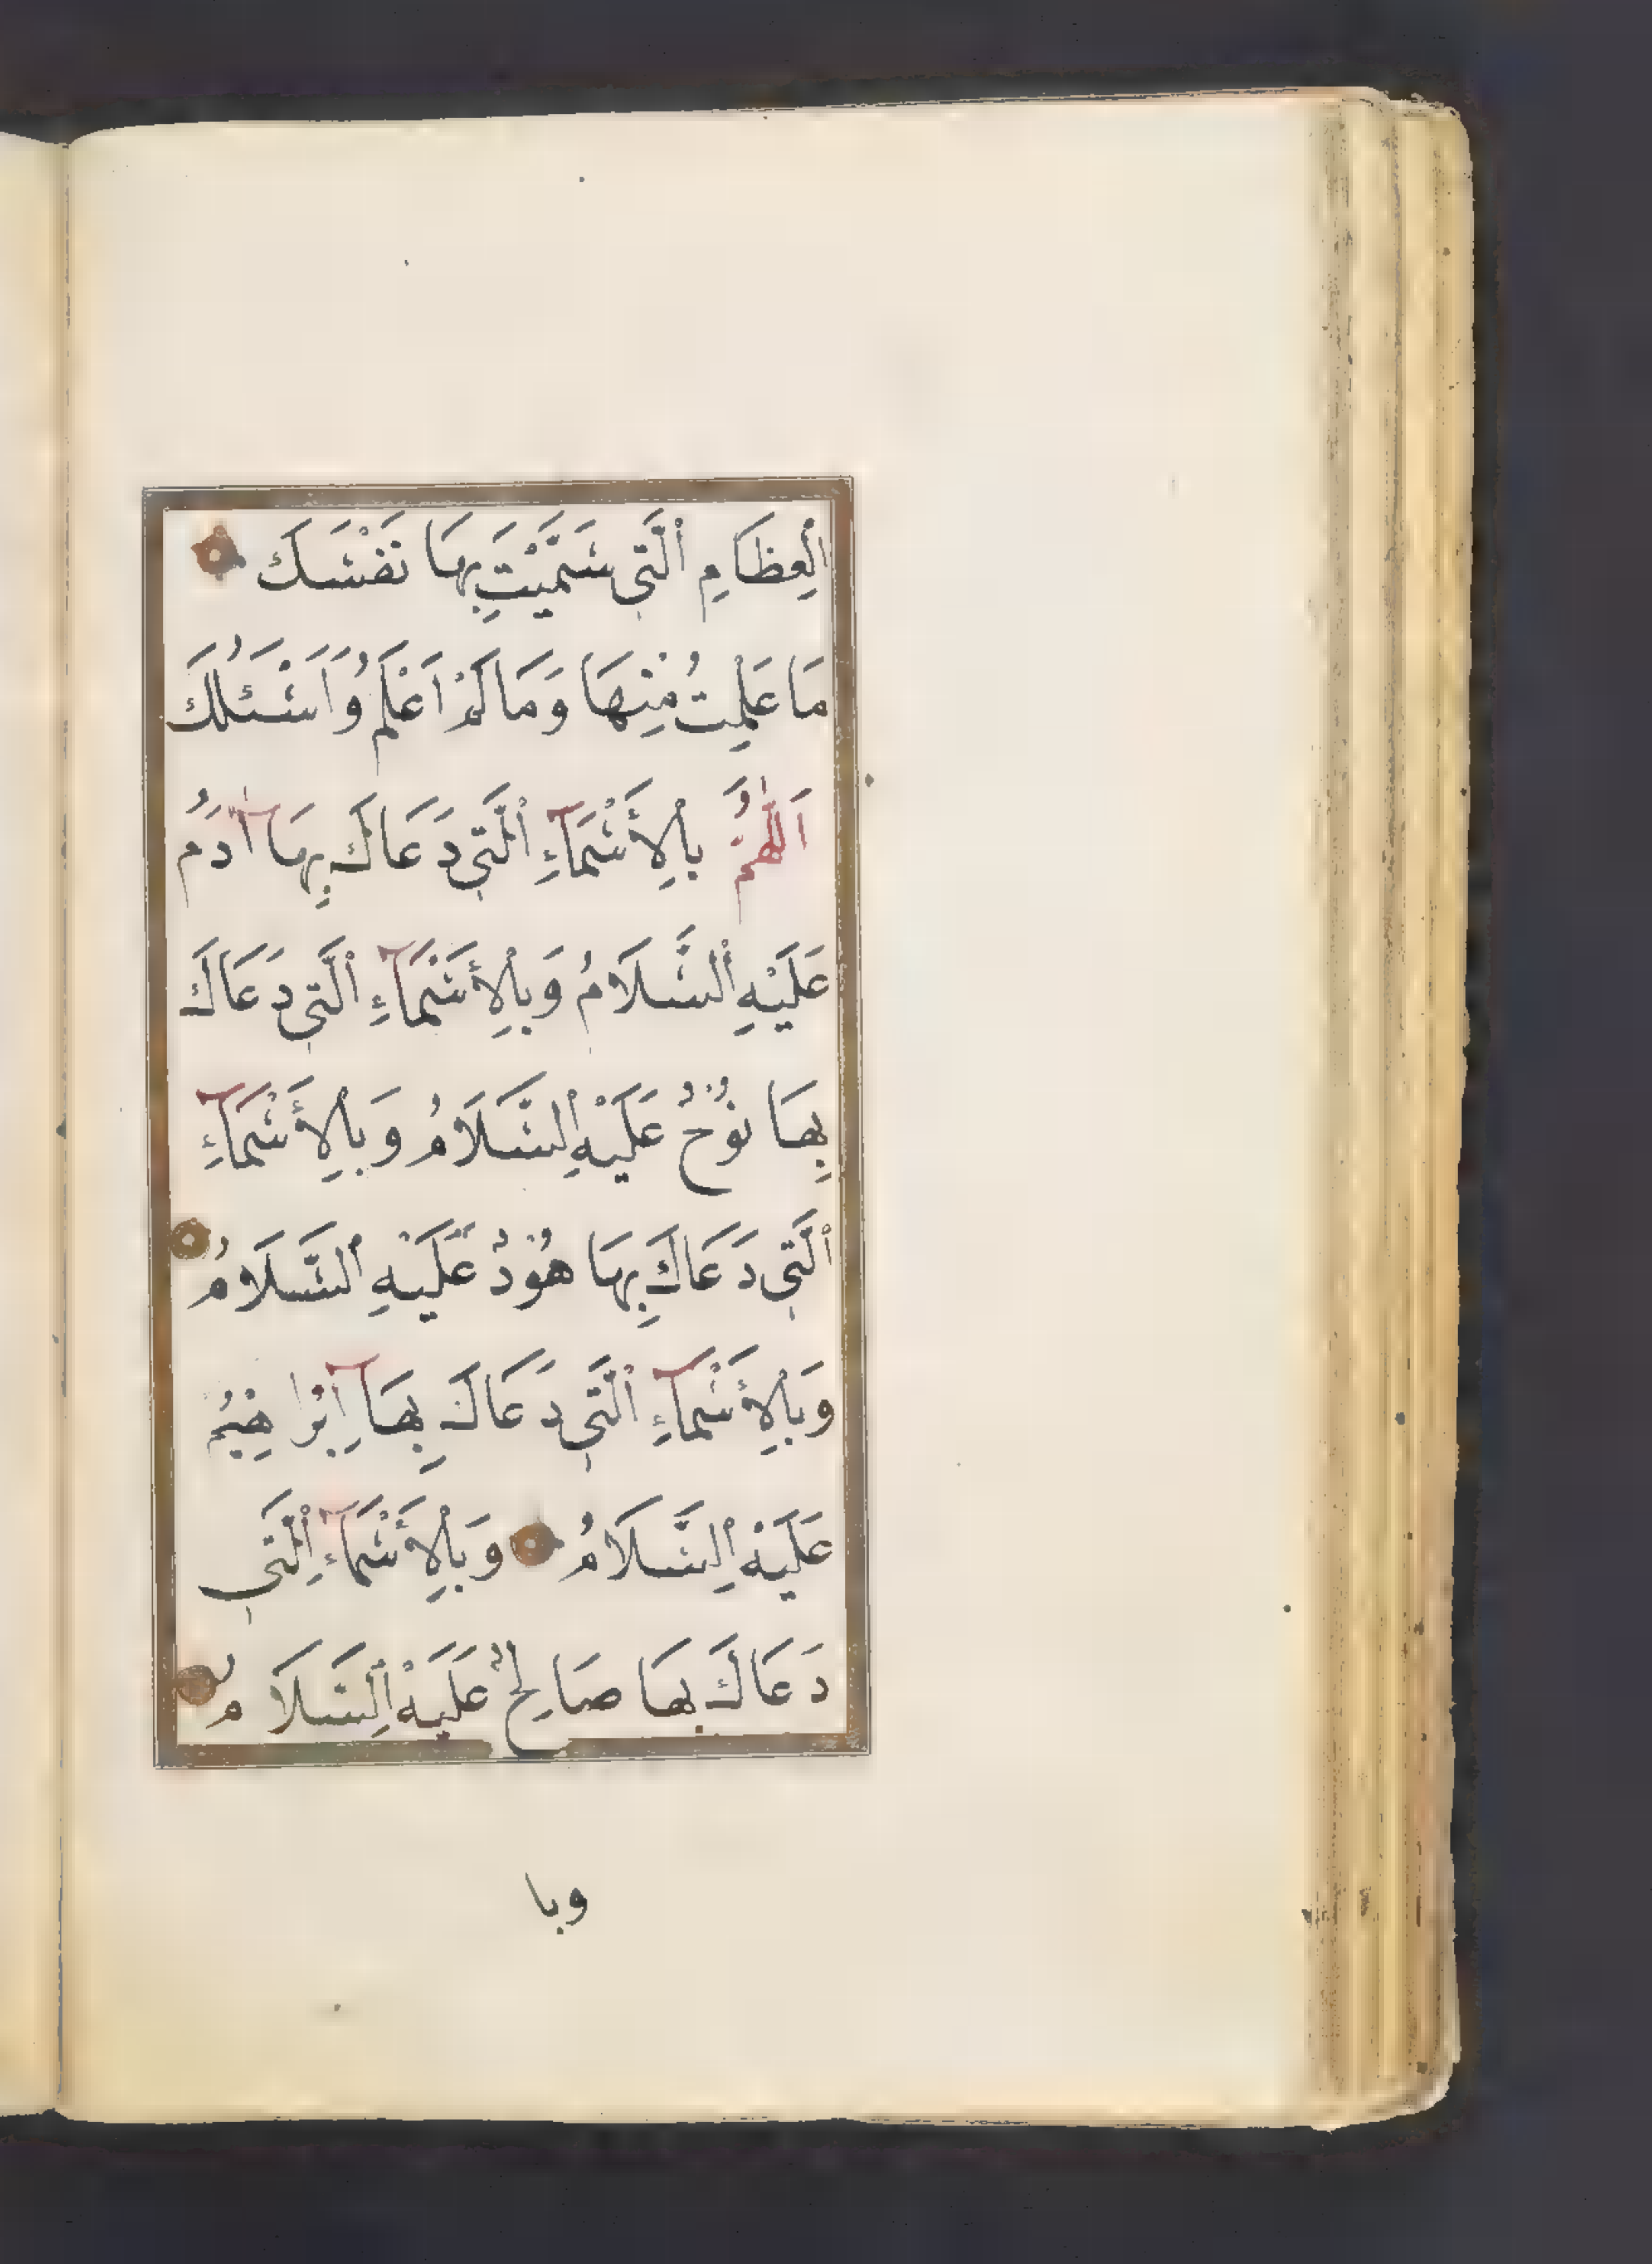 الْعِظَامِ الَّتِي سَمَّيْتَ بِهَا نَفْسَكَ
مَا عَلِمْتُ مِنْهَا وَمَا لَمْ اَعْلَمُ وَاَسْئَلُكَ
اَللّٰهُمَّ بِالْأَسْمَآءِ الَّتِي دَعَاكَ بِهَا آدَمُ
عَلَيْهِ السَّلَامُ وَبِالْأَسْمَآءِ الَّتِي دَعَاكَ
بِهَا نُوْحُ عَلَيْهِ السَّلَامُ وَبِالْأَسْمَآءِ
الَّتِي دَعَاكَ بِهَا هُوْدُ عَلَيْهِ السَّلَامُ
وَبِالْأَسْمَآءِ الَّتِي دَعَاكَ بِهَآ اِبْرَاهِيْمُ
عَلَيْهِ السَّلَامُ وَبِالْأَسْمَآءِ الَّتِي
دَعَاكَ بِهَا صَالِحُ عَلَيْهِ السَّلَامُ
وبا